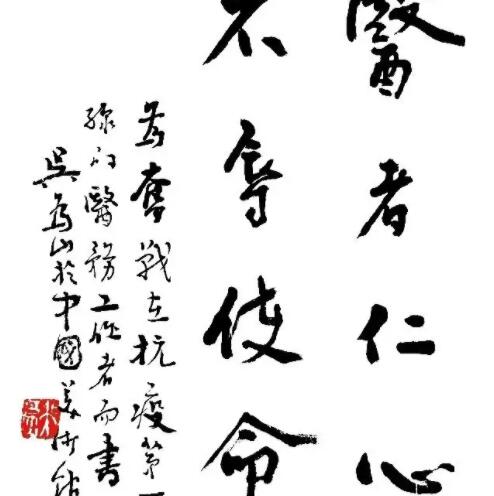 醫者仁心
不辱使命
為奮戰在抗疫第一
線的醫務工作者而書
吳為山於中國美術館